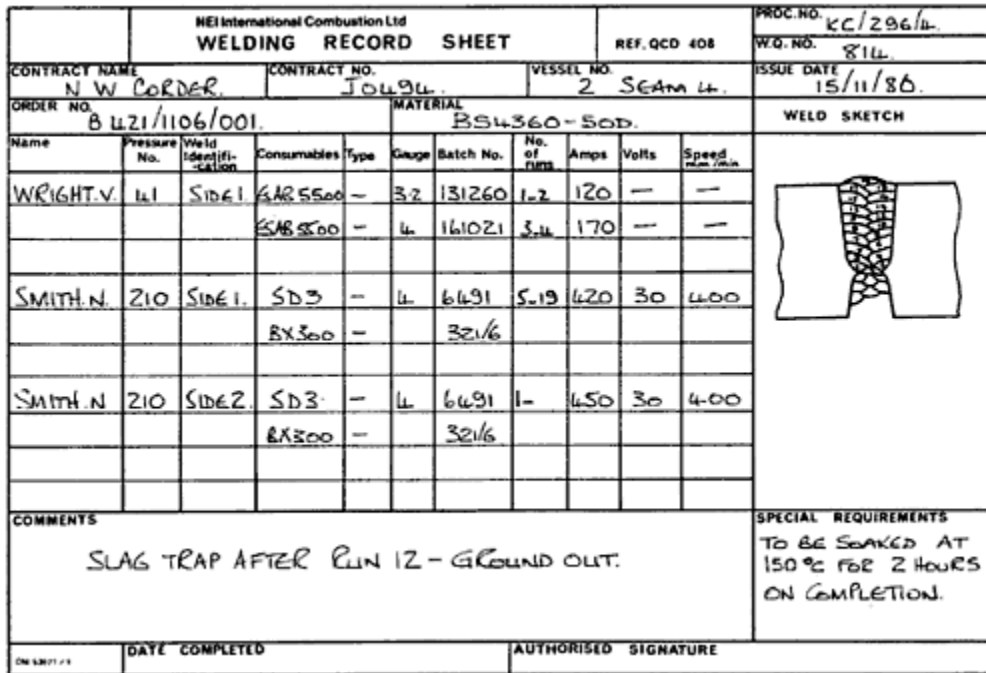 NEI International Combustion Ltd
WELDING RECORD SHEET
REF. QCD 408
PROC. NO. KC/296/4.
W.Q. NO. 814.
CONTRACT NAME N W CORDER.
CONTRACT NO. J0494.
VESSEL NO. 2 SEAM 4.
ISSUE DATE 15/11/86.
ORDER NO. 8 421/1106/001.
MATERIAL BS4360-50D.
WELD SKETCH
Name Pressure No. Weld Identifi-cation Consumables Type Gauge Batch No. No. of runs Amps Volts Speed mm/min
WRIGHT.V. 41 SIDE 1. ESAB 5500 - 3.2 131260 1-2 120 - -
ESAB 5500 - 4 161021 3-4 170 - -
SMITH.N. 210 SIDE 1. SD3 - 4 6491 5-19 420 30 400
BX300 - 321/6
SMITH.N 210 SIDE 2. SD3 - 4 6491 1- 450 30 400
BX300 - 321/6
COMMENTS
SLAG TRAP AFTER RUN 12 - GROUND OUT.
SPECIAL REQUIREMENTS
TO BE SOAKED AT
150 °C FOR 2 HOURS
ON COMPLETION.
DATE COMPLETED
AUTHORISED SIGNATURE